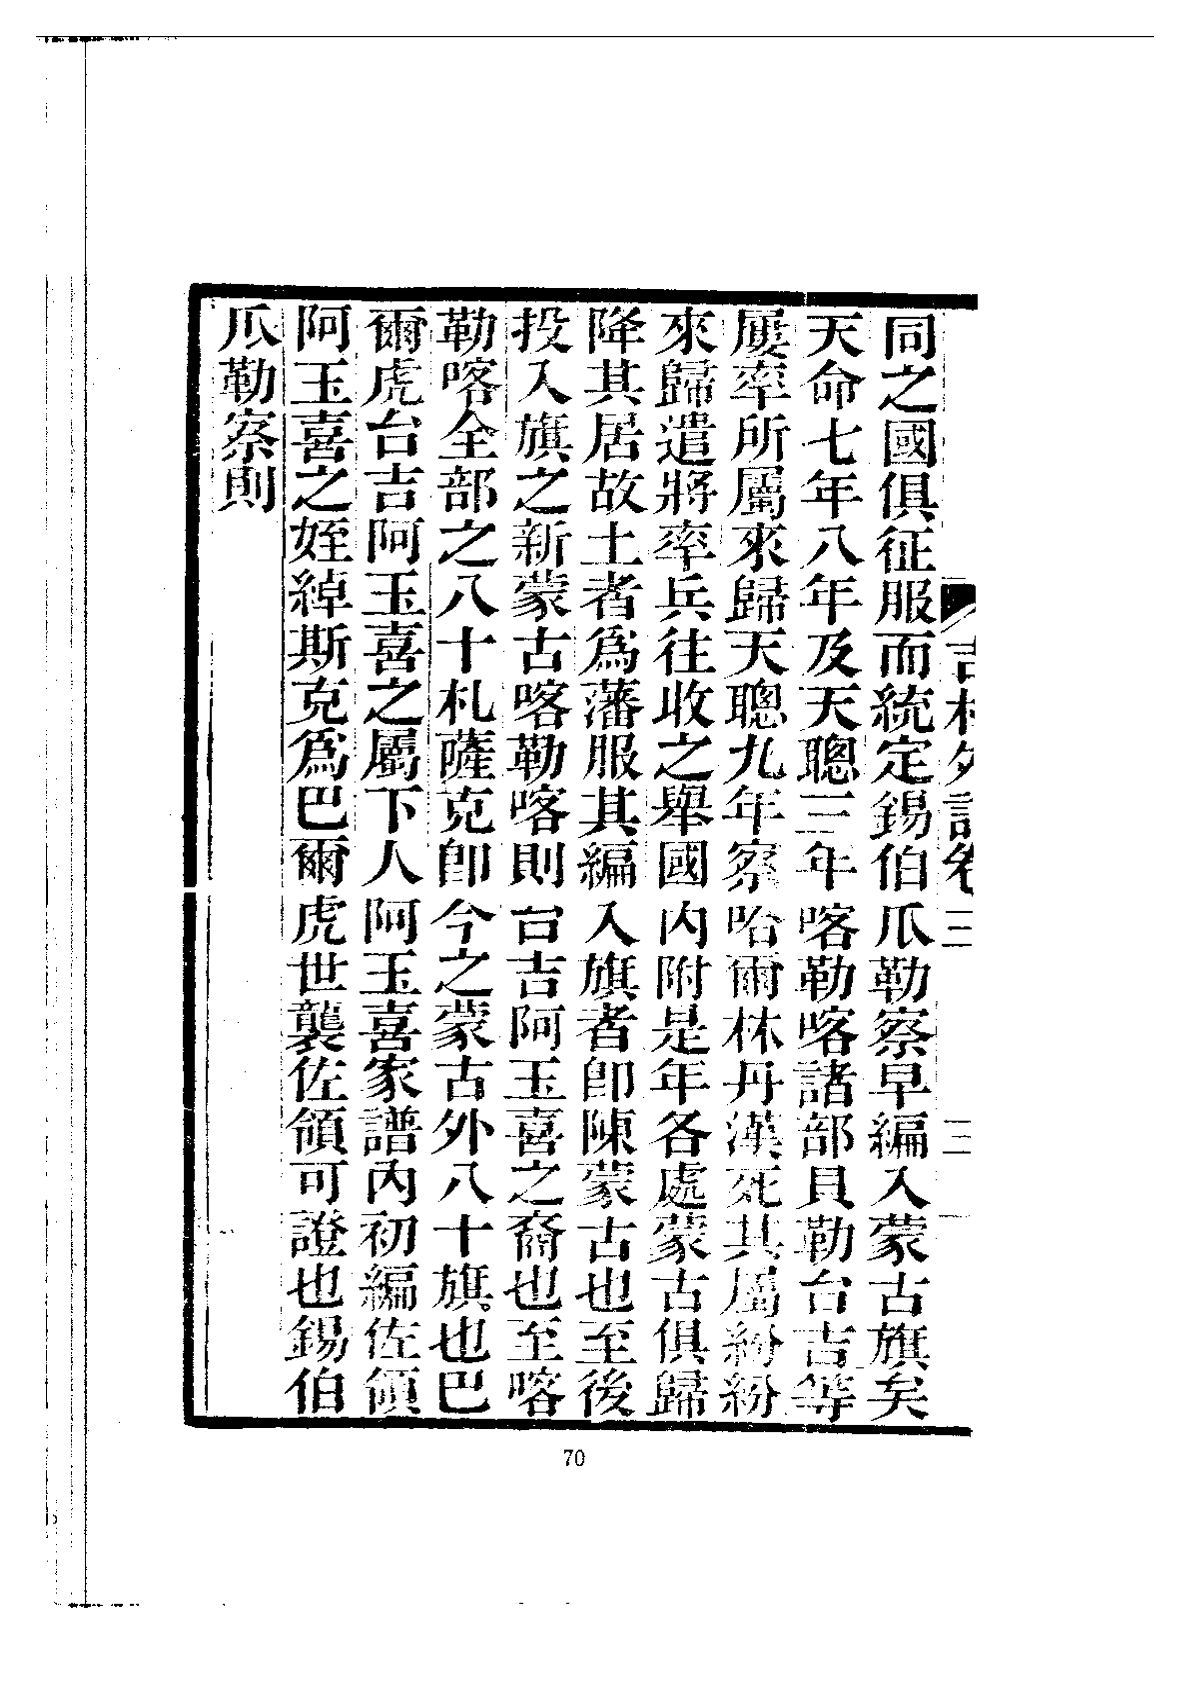 吉林外記卷三 三
同之國俱征服而統定錫伯瓜勒察早編入蒙古旗矣
天命七年八年及天聰三年喀勒喀諸部貝勒台吉等
屢率所屬來歸天聰九年察哈爾林丹漢死其屬紛紛
來歸遣將率兵往收之舉國內附是年各處蒙古俱歸
降其居故土者爲藩服其編入旗者卽陳蒙古也至後
投入旗之新蒙古喀勒喀則台吉阿玉喜之裔也至喀
勒喀全部之八十札薩克卽今之蒙古外八十旗也巴
爾虎台吉阿玉喜之屬下人阿玉喜家譜內初編佐領
阿玉喜之姪綽斯克爲巴爾虎世襲佐領可證也錫伯
瓜勒察則
70